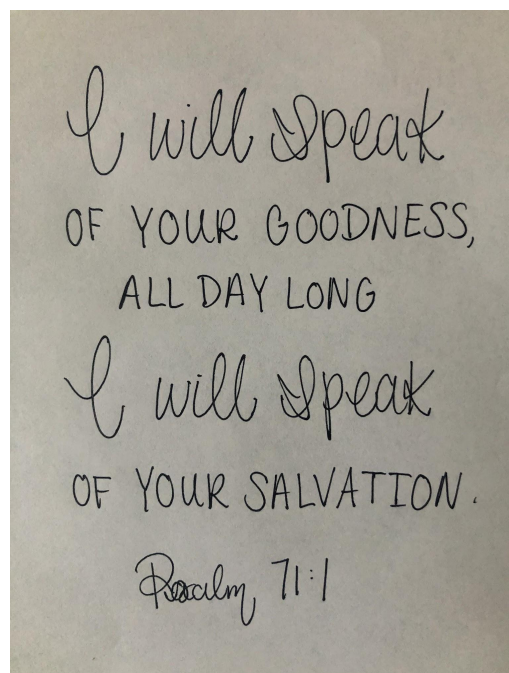 I will speak
OF YOUR GOODNESS,
ALL DAY LONG
I will speak
OF YOUR SALVATION.
Psalm 71:1